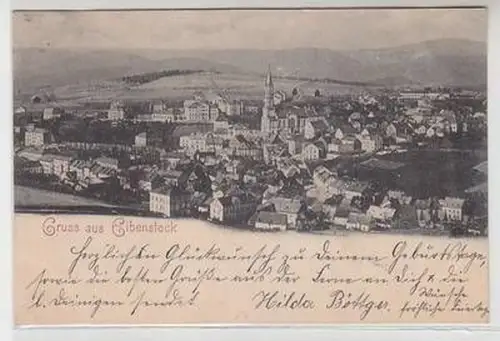 Gruss aus Eibenstock
Herzlichen Glückwunsch zu Deinem Geburtstage,
sowie die besten Grüße aus der Ferne an Dich & die
l. Deinigen sendet Hilda Böttger. Wünsche
fröhliche Feiertag